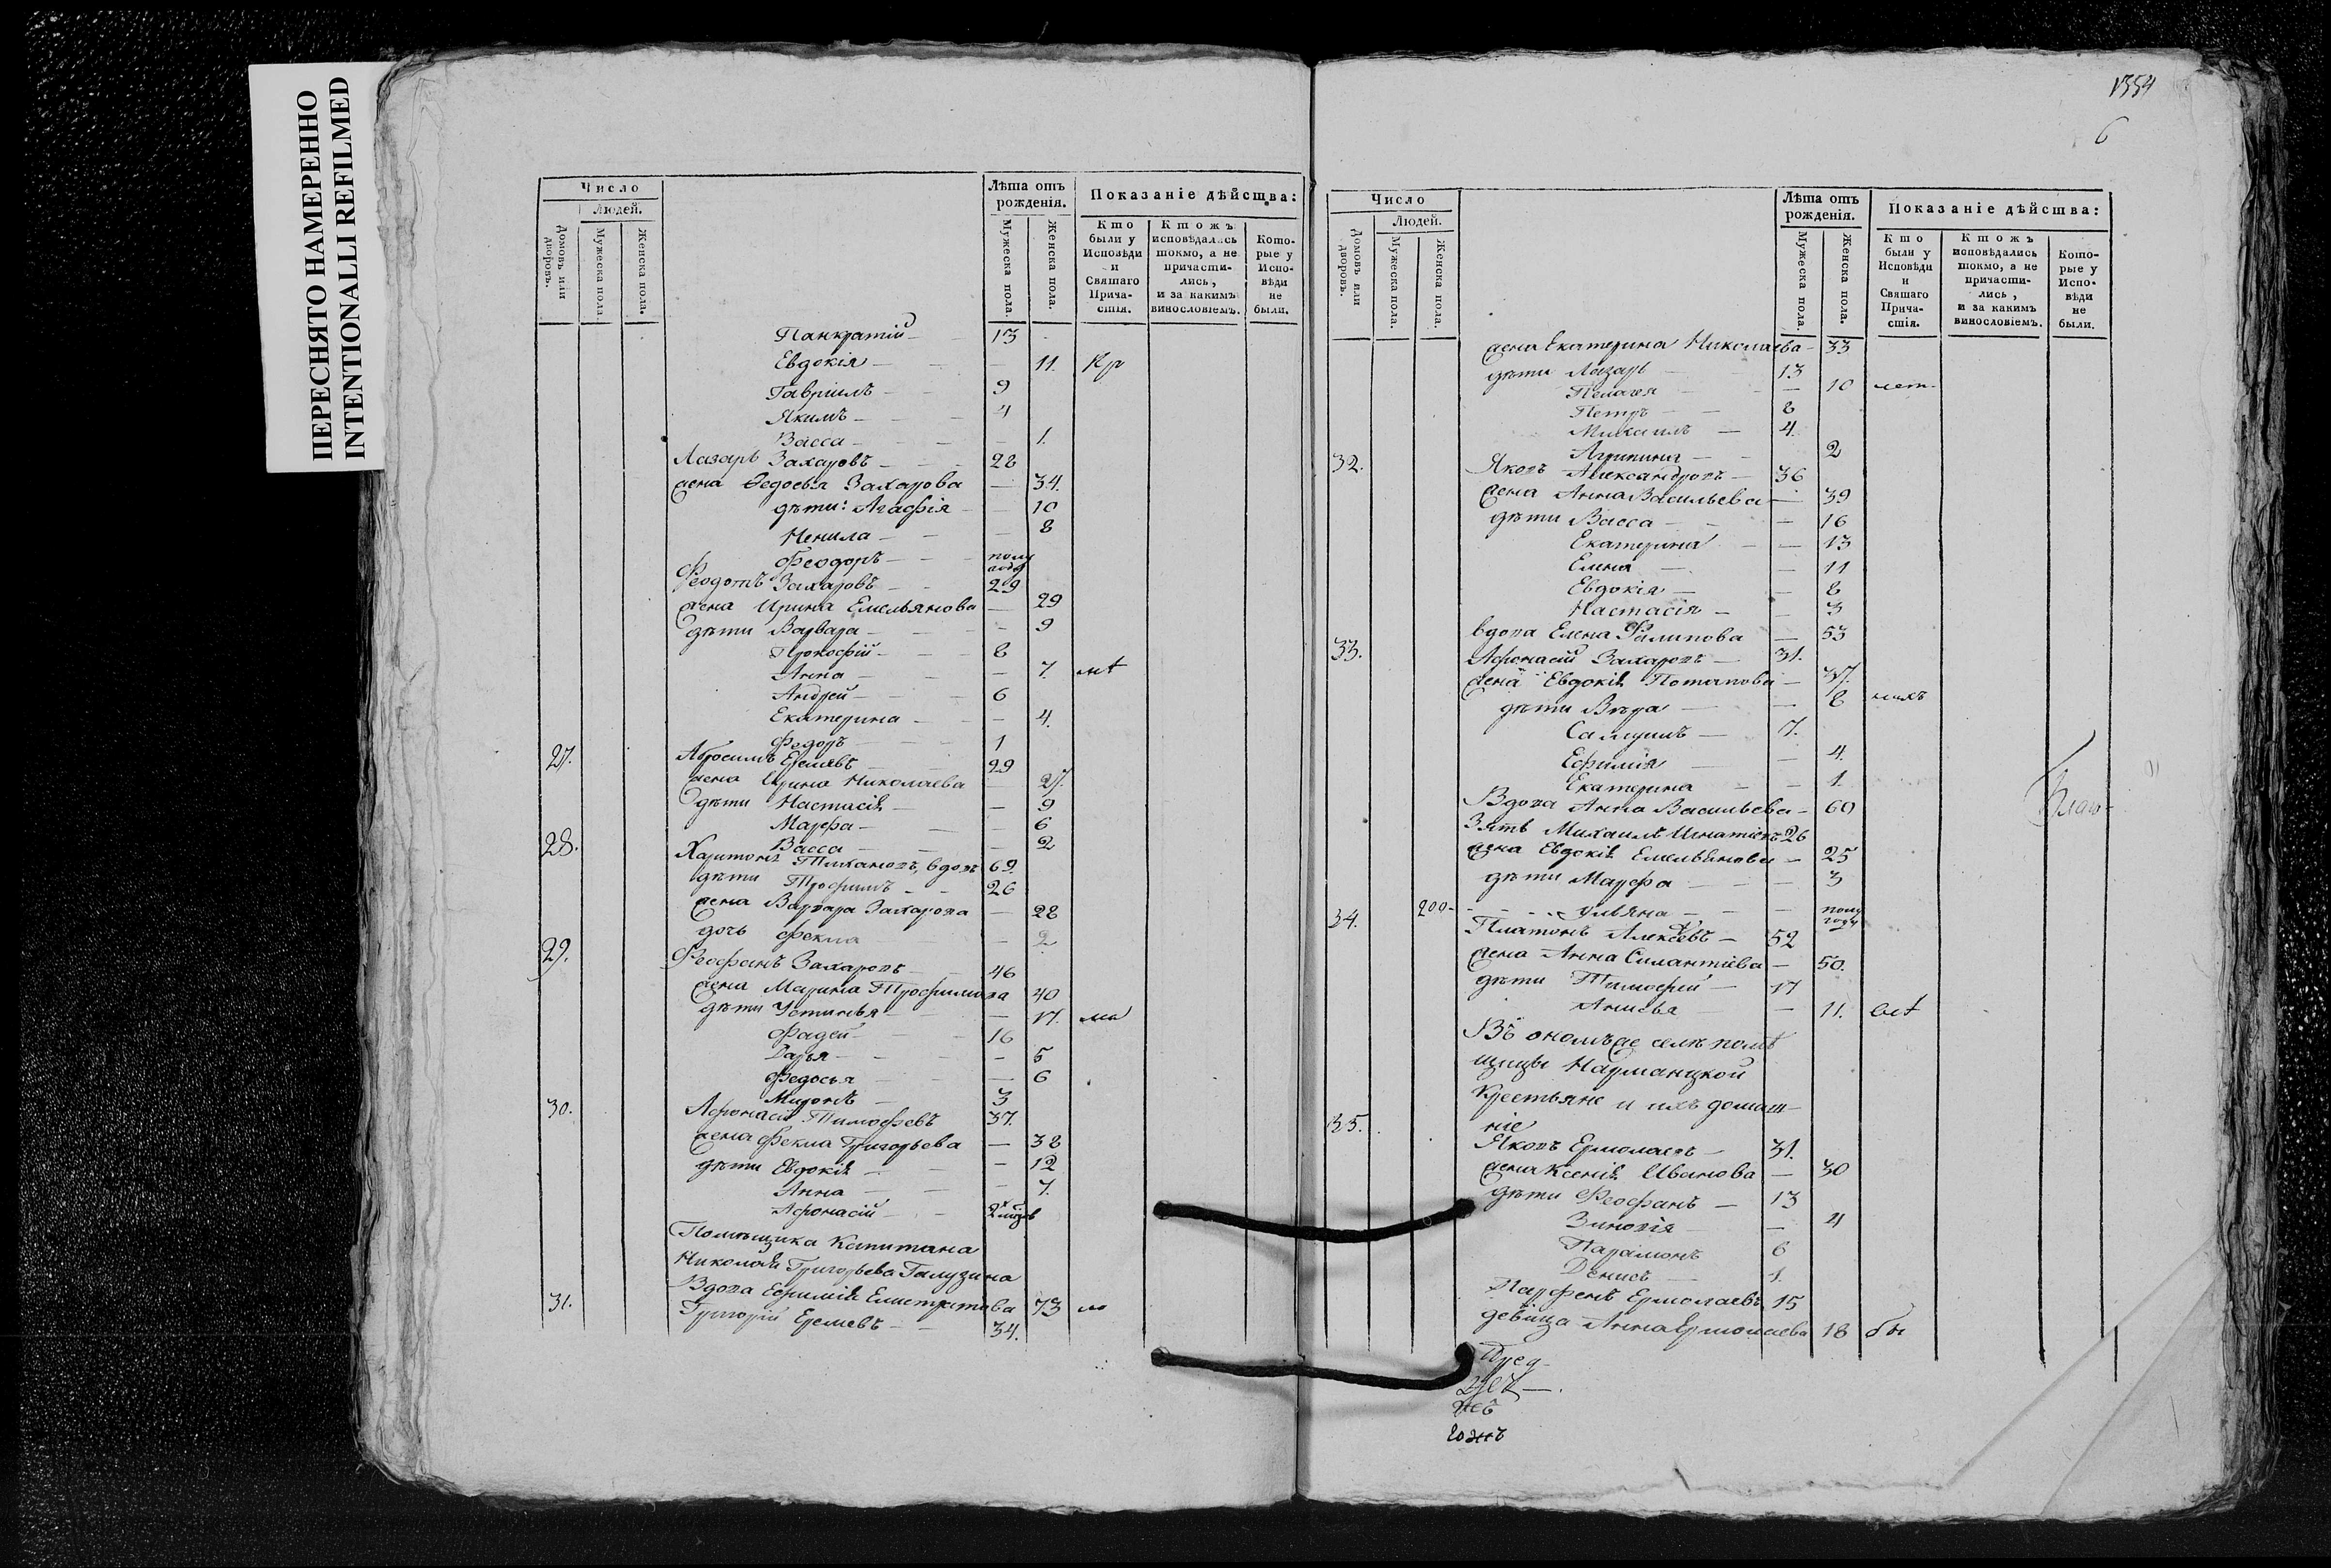 ПЕРЕСНЯТО НАМЕРЕННО
INTENTIONALLI REFILMED
Число
Людей.
Домовъ или дворовъ.
Мужеска пола.
Женска пола.
Лѣта отъ рожденія.
Мужеска пола.
Женска пола.
Показаніе дѣйства:
Кто были у Исповѣди и Святаго Прича-стія.
Ктожъ исповѣдались токмо, а не причасти-лись, и за какимъ винословіемъ.
Кото-рые у Испо-вѣди не были.
Панкратій — 13
Евдокія — — 11. Кр
Гавріилъ — 9
Якимъ — 4
Васса — — 1.
Лазарь Захаровъ — 28
жена Федосья Захарова — 34.
дѣти: Агафія — — 10
Ненила — — 8
Феодоръ — полу года
Феодотъ Захаровъ — 29
жена Ирина Емельянова — 29
дѣти Варвара — — 9
Прокофій — 8
Анна — — 7.
Андрей — 6
Екатерина — — 4.
Федоръ — 1
27. Абросимъ Еремѣвъ — 29
жена Ирина Николаева — 27.
дѣти Настасія — — 9
Марфа — — 6
Васса — — 2
28. Харитонъ Тихановъ, вдовъ 69.
дѣти Трофимъ — 26
жена Варвара Захарова — 28
дочь Фекла — 2
29. Феофанъ Захаровъ — 46
жена Марина Трофимова 40
дѣти Устинья — — 17.
Фадей — 16
Дарья — — 5
Федосья — 6
Миронъ — 3
30. Афонасій Тимофѣевъ 37.
жена Фекла Григорьева — 38
дѣти Евдокія — — 12
Анна — — 7.
Афонасій — 2хъ
Помѣщика Капитана
Николая Григорьева Галузина
Вдова Ефимія Елистратова 73
31. Григорій Еремевъ — 34.
1354
6
Число
Людей.
Домовъ или дворовъ.
Мужеска пола.
Женска пола.
Лѣта отъ рожденія.
Мужеска пола.
Женска пола.
Показаніе дѣйства:
Кто были у Исповѣди и Святаго Прича-стія.
Ктожъ исповѣдались токмо, а не причасти-лись, и за какимъ винословіемъ.
Кото-рые у Испо-вѣди не были.
жена Екатерина Николаева — 33
дѣти Лазарь — 13
Пелагея — — 10
Петръ — 8
Михаилъ — 4.
Агрипина — 2
32. Яковъ Александровъ — 36
жена Анна Васильева — 39
дѣти Васса — — 16
Екатерина — — 13
Елена — — 11
Евдокія — — 8
Настасія — — 3
вдова Елена Филипова — 53
33. Афонасій Захаровъ — 31.
жена Евдокія Потапова — 37.
дѣти Вѣра — — 8
Самуилъ — 7.
Ефимія — — 4.
Екатерина — — 1.
Вдова Анна Васильева — 60
Зять Михаилъ Игнатіевъ 26
жена Евдокія Емельянова — 25
дѣти Марфа — — 3
200 Ульяна — — полу года
34. Платонъ Алексѣевъ — 52
жена Анна Силантіева — 50.
дѣти Тимофей — 17
Анисья — — 11.
Въ ономъ же селѣ помѣ
щицы Нармацкой
Крестьяне и ихъ домаш-
ніе
35. Яковъ Ермолаевъ — 31.
жена Ксенія Иванова — 30
дѣти Феофанъ — 13
Зиновія — 4
Парамонъ 6
Денисъ — 1.
Парфенъ Ермолаевъ 15
девица Анна Ермолаева 18 бы